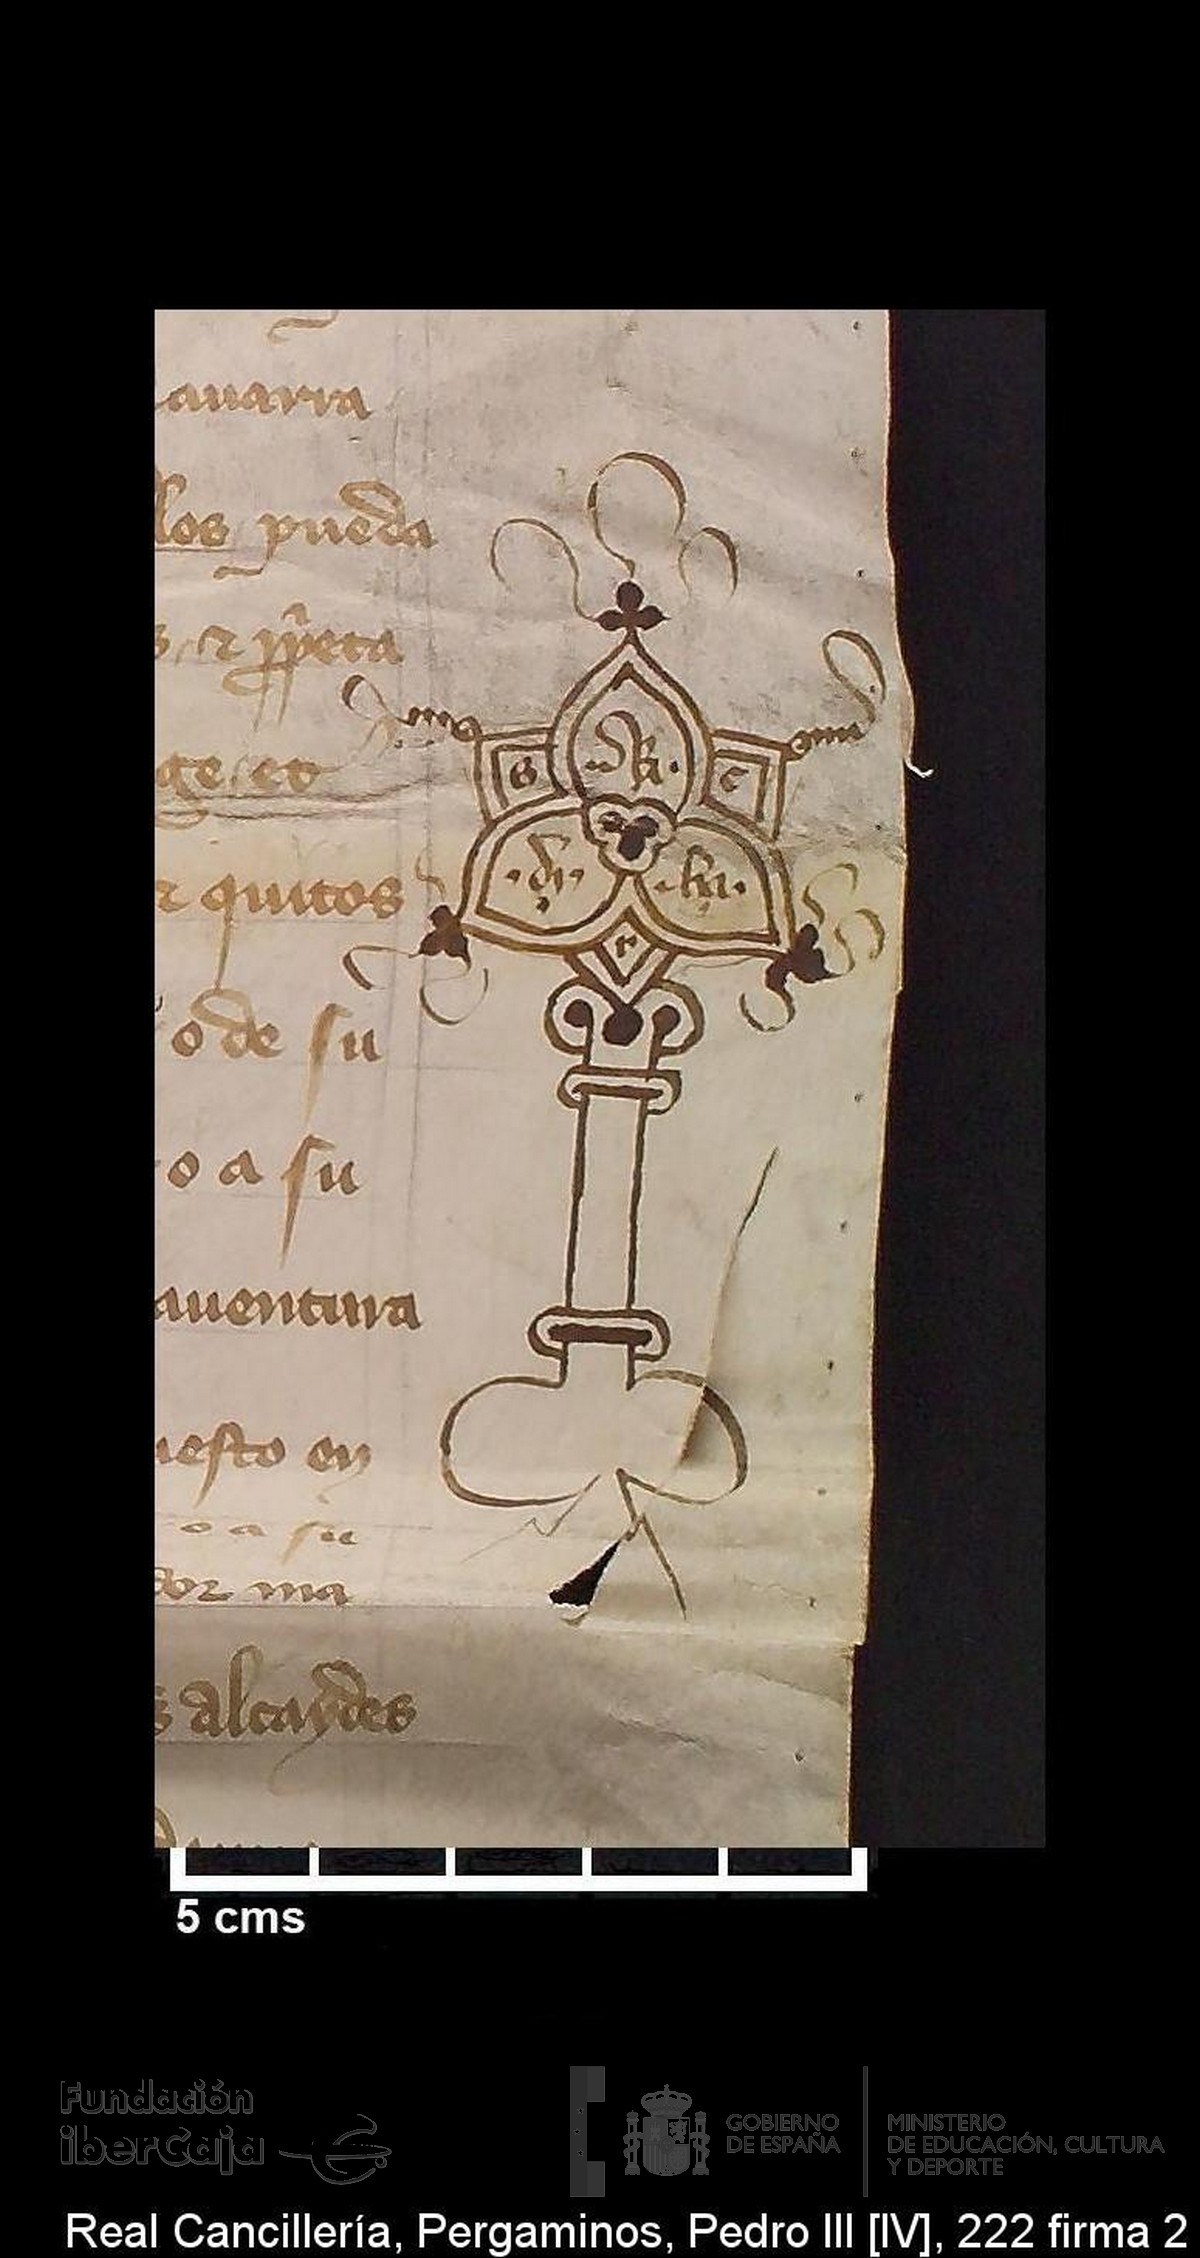 auarra
llos pueda
s, τ ppeta
ge, et
τ quitos
o de su
o a su
auentura
uesto en
o a su
dor ma
s alcaydes
S
C
r
5 cms
Fundación
iberCaja
GOBIERNO
DE ESPAÑA
MINISTERIO
DE EDUCACIÓN, CULTURA
Y DEPORTE
Real Cancillería, Pergaminos, Pedro III [IV], 222 firma 2